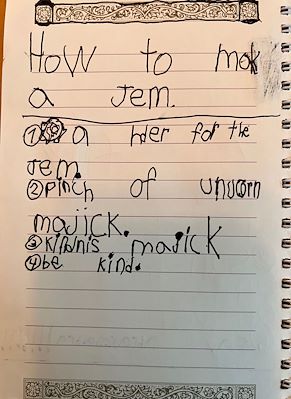 How to mak
a Jem.
① a hder for the
Jem.
② pinch of unucorn
majick.
③ kindnis majick
④ be kind.